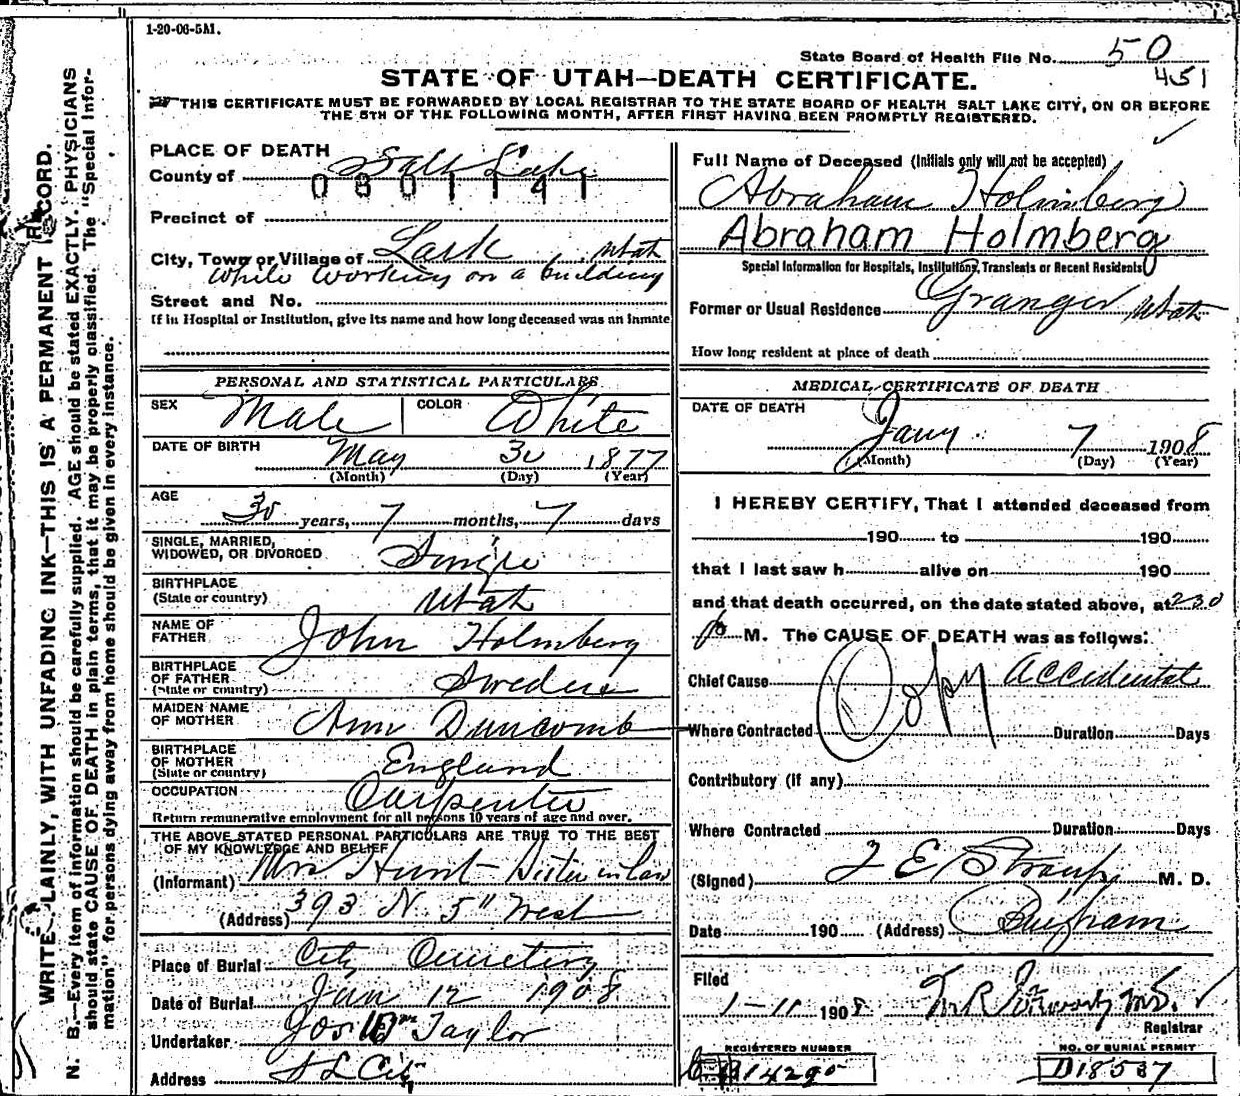 1-20-06-5M.
State Board of Health File No. 50
451
STATE OF UTAH—DEATH CERTIFICATE.
THIS CERTIFICATE MUST BE FORWARDED BY LOCAL REGISTRAR TO THE STATE BOARD OF HEALTH SALT LAKE CITY, ON OR BEFORE
THE 5TH OF THE FOLLOWING MONTH, AFTER FIRST HAVING BEEN PROMPTLY REGISTERED.
WRITE PLAINLY, WITH UNFADING INK—THIS IS A PERMANENT RECORD.
N. B.—Every item of information should be carefully supplied. AGE should be stated EXACTLY. PHYSICIANS
should state CAUSE OF DEATH in plain terms, that it may be properly classified. The "Special Infor-
mation" for persons dying away from home should be given in every instance.
PLACE OF DEATH
County of Salt Lake
0801141
Precinct of
City, Town or Village of Lark, Utah
while working on a building
Street and No.
If in Hospital or Institution, give its name and how long deceased was an inmate
PERSONAL AND STATISTICAL PARTICULARS
SEX Male COLOR White
DATE OF BIRTH May 30 1877
(Month) (Day) (Year)
AGE
30 years, 7 months, 7 days
SINGLE, MARRIED,
WIDOWED, OR DIVORCED Single
BIRTHPLACE
(State or country) Utah
NAME OF
FATHER John Holmberg
BIRTHPLACE
OF FATHER
(State or country) Sweden
MAIDEN NAME
OF MOTHER Ann Duncomb
BIRTHPLACE
OF MOTHER
(State or country) England
OCCUPATION Carpenter
Return remunerative employment for all persons 10 years of age and over.
THE ABOVE STATED PERSONAL PARTICULARS ARE TRUE TO THE BEST
OF MY KNOWLEDGE AND BELIEF
(Informant) Mrs Hunt - Sister in Law
(Address) 393 N. 5" West
Place of Burial City Cemetery
Date of Burial Jan 12 1908
Undertaker Jos Wm Taylor
Address S L City
Full Name of Deceased (Initials only will not be accepted)
Abraham Holmberg
Abraham Holmberg
Special Information for Hospitals, Institutions, Transients or Recent Residents
Former or Usual Residence Granger Utah
How long resident at place of death
MEDICAL CERTIFICATE OF DEATH
DATE OF DEATH
Jany 7 1908
(Month) (Day) (Year)
I HEREBY CERTIFY, That I attended deceased from
190 to 190
that I last saw h alive on 190
and that death occurred, on the date stated above, at 230
p M. The CAUSE OF DEATH was as follows:
Chief Cause Accidental
Copy
Where Contracted Duration Days
Contributory (if any)
Where Contracted Duration Days
(Signed) F E Straup M. D.
Date 190 (Address) Bingham
Filed
1-11 1908
Registrar
REGISTERED NUMBER
14290
NO. OF BURIAL PERMIT
D18537